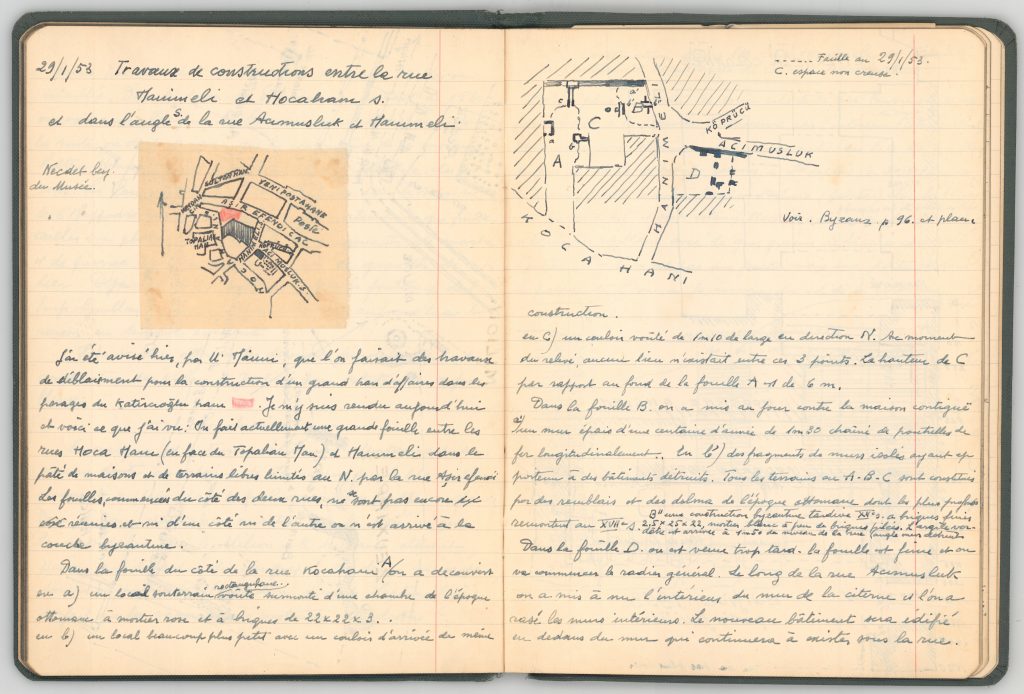 29/1/53 Travaux de constructions entre la rue
Hanimeli et Hocahan s.
et dans l'angle S. de la rue Acimusluk et Hanimeli.
Necdet bey.
du Musée.
SULTAN HAN.
YENI POSTAHANE
AŞIR EFENDI CAD.
Poste
TOPALIAN
HAN
HANIMELI
ACIMUSLUK. S.
J'ai été avisé hier, par Mr Männi, que l'on faisait des travaux
de déblaiement pour la construction d'un grand han d'affaires dans les
parages du Katircioğlu hane. Je m'y suis rendu aujourd'hui
et voici ce que j'ai vu : On fait actuellement une grande fouille entre les
rues Hoca Hanı (en face du Topalian Han) et Hanimeli dans le
pâté de maisons et de terrains libres limités au N. par la rue Aşir efendi
des fouilles, commencées du côté des deux rues, ne sont pas encore
réunies et ni d'un côté ni de l'autre on n'est arrivé à la
couche byzantine.
Dans la fouille du côté de la rue Kocahani A/ on a découvert
en a) un local souterrain rectangulaire vouté surmonté d'une chambre de l'époque
ottomane à mortier rose et à briques de 22x22x3.
en b) un local beaucoup plus petit avec un couloir d'arrivée de même
Fouille au 29/1/53.
C. espace non creusé.
a'
b'
B
C
c
A
a
b
D
KÖPRÜCÜ
ACIMUSLUK
HANIMELI
KOCAHANI
Voir. Byzanz p 96. et plan
construction.
en C) un couloir voûté de 1m10 de large en direction N. Au moment
du relevé, aucun lien n'existait entre ces 3 points. La hauteur de C
par rapport au fond de la fouille A est de 6 m.
Dans la fouille B. on a mis au jour contre la maison contiguë
a' un mur épais d'une centaine d'année de 1m30 chaîné de poutrelles de
fer longitudinalement. En b') des fragments de murs isolés ayant ap
partenu à des bâtiments détruits. Tous les terrains en A-B-C sont constitués
par des remblais et des debris de l'époque ottomane dont les plus profonds
B'' une construction byzantine tardive XIIe s. a briques fines
remontent au XVIIe s. 2,5 x 25 x 22, mortier blanc à peu de briques pilées.
arrivée à 1m50 du niveau de la rue
Dans la fouille D. on est venu trop tard. La fouille est finie et on
va commencer le radier général. Le long de la rue Acimusluk
on a mis à nu l'intérieur du mur de la citerne et l'on a
rasé les murs intérieurs. Le nouveau bâtiment sera édifié
en dedans du mur qui continuera à exister sous la rue.